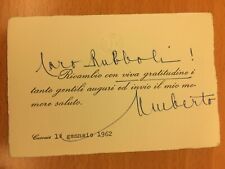 Caro Rubboli !
Ricambio con viva gratitudine i
tanto gentili auguri ed invio il mio me-
more saluto.
Umberto
Cascais 14 gennaio 1962